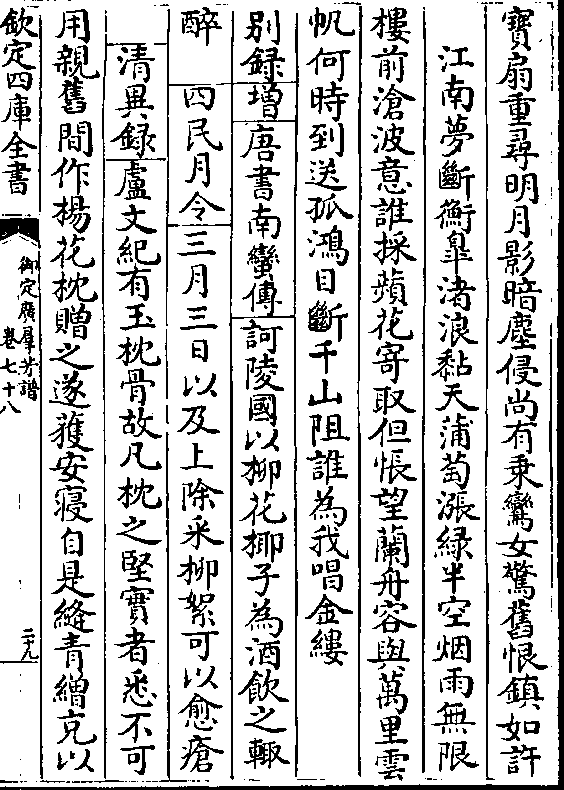 寶扇重尋明月影暗塵侵尚有乗鸞女驚舊恨鎮如許
江南夢斷衡臯渚浪黏天蒲萄漲緑半空烟雨無限
樓前滄波意誰採蘋花寄取但悵望蘭舟容與萬里雲
帆何時到送孤鴻目斷千山阻誰為我唱金縷
别録增唐書南蠻傳訶陵國以柳花椰子為酒飲之輙
醉 四民月令三月三日以及上除采柳絮可以愈瘡
清異録盧文紀有玉枕骨故凡枕之堅實者悉不可
用親舊間作楊花枕贈之遂獲安寢自是縫青繒充以
欽定四庫全書
御定廣羣芳譜
卷七十八
二十九